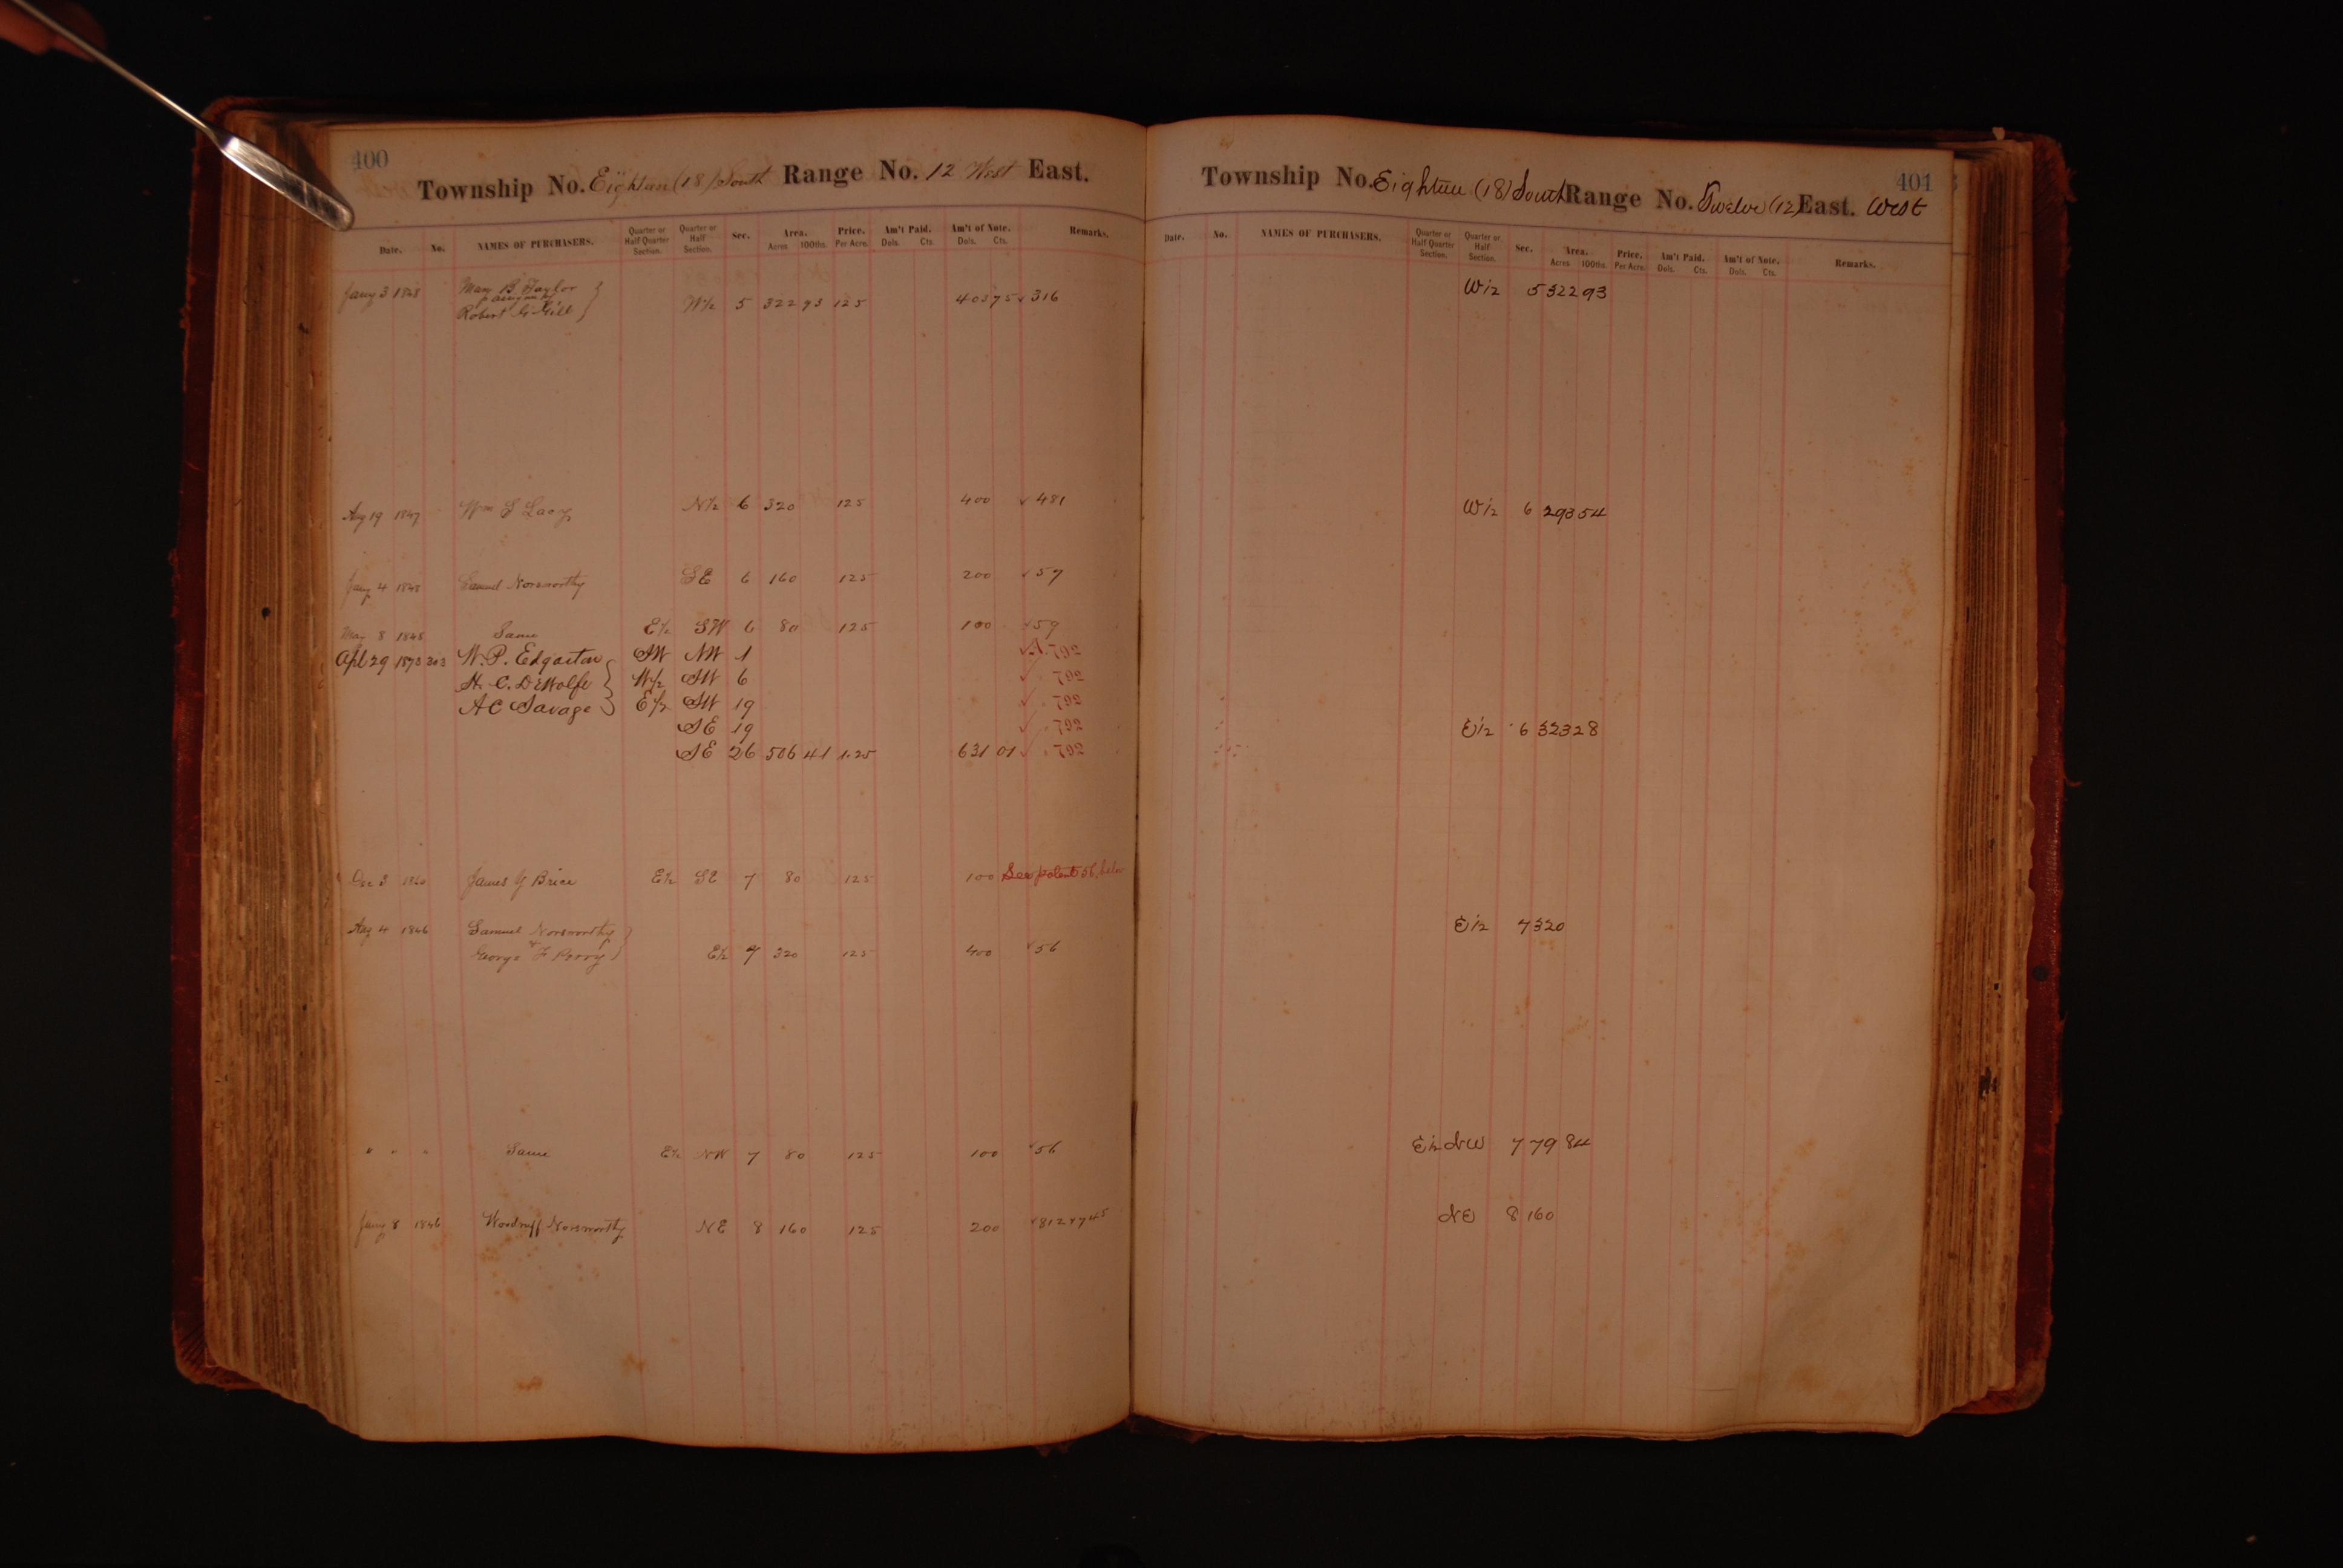 400
Township No. Eighteen (18) South Range No. 12 West East.
Date. No. NAMES OF PURCHASERS. Quarter or Half Quarter Section. Quarter or Half Section. Sec. Area. Acres 100ths. Price. Per Acre. Am't Paid. Dols. Cts. Am't of Note. Dols. Cts. Remarks.
Jany 3 1848 Mary B. Taylor
Robert G Gill W½ 5 322 93 125 403 75 ✓ 316
Aug 19 1847 Wm S Lacy N½ 6 320 125 400 ✓ 481
Jany 4 1848 Samuel Norsworthy SE 6 160 125 200 ✓ 59
May 8 1848 Same E½ SW 6 80 125 100 ✓ 59
Apl 29 1873 303 W. P. Edgarton SW NW 1 ✓ A. 792
H. C. DeWolfe W½ SW 6 ✓ . 792
A C Savage E½ SW 19 ✓ . 792
SE 19 ✓ . 792
SE 26 506 41 1.25 631 01 ✓ . 792
Dec 3 1860 James Y Brice E½ SE 7 80 125 100 See patent 56,
Aug 4 1846 Samuel Norsworthy
&
George F Perry E½ 7 320 125 400 ✓ 56
" " " Same E½ NW 7 80 125 100 ✓ 56
Jany 8 1846 Woodruff Norsworthy NE 8 160 125 200 ✓ 812 ✓ 745
401
Township No. Eighteen (18) South Range No. Twelve (12) East. West
Date. No. NAMES OF PURCHASERS. Quarter or Half Quarter Section. Quarter or Half Section. Sec. Area. Acres 100ths. Price. Per Acre. Am't Paid. Dols. Cts. Am't of Note. Dols. Cts. Remarks.
W½ 5 322 93
W½ 6 293 54
E½ 6 323 28
E½ 7 320
E½ NW 7 79 84
NE 8 160